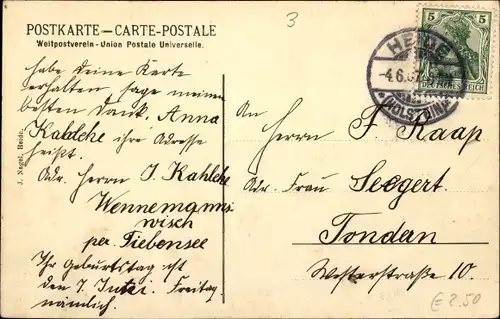 3
POSTKARTE—CARTE-POSTALE
Weltpostverein - Union Postale Universelle.
5 5
DEUTSCHES REICH
HEIDE
-4.6.07.
* (HOLSTEIN) *
habe deine Karte
erhalten sage meinen
besten Dank. Anna
Kahlcke ihre Adresse
heißt.
Adr. Herrn J. Kahlcke
Wennemanns-
wisch
per. Tiebensee
Ihr Geburtstag ist
den 7. Freitag
nämlich.
J. Nagel, Heide.
An
Herrn F. Raap
Adr. Frau Seegert
Tondern
Westerstraße 10.
€ 2.50